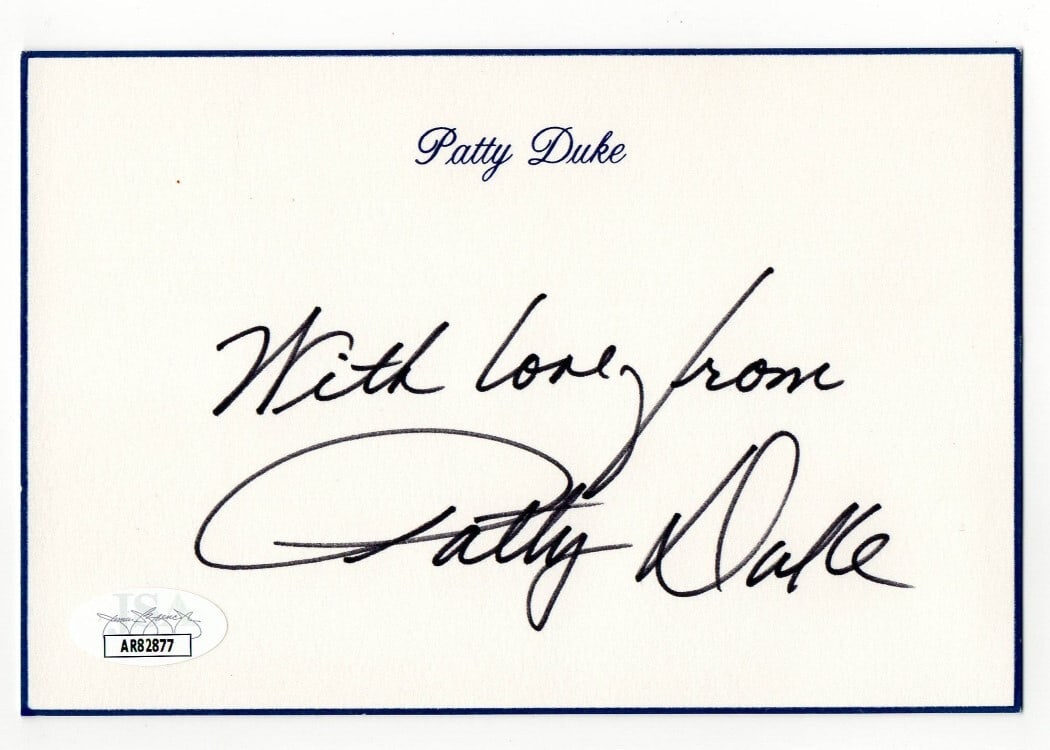 Patty Duke
With love, from
Patty Duke
JSA
AR82877